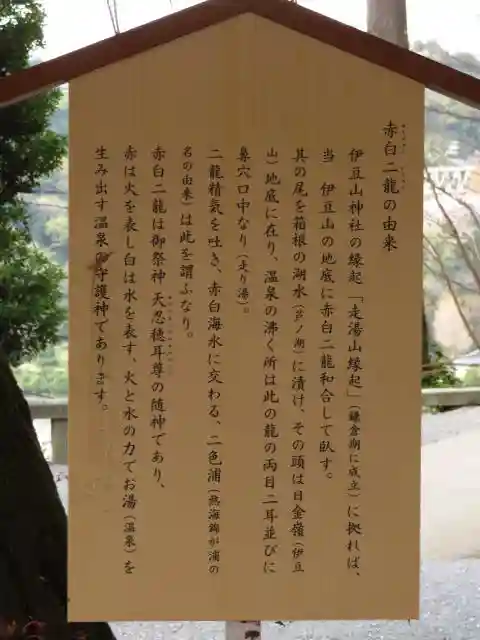 赤白二龍の由来
伊豆山神社の縁起「走湯山縁起」（鎌倉期に成立）に拠れば、
当 伊豆山の地底に赤白二龍和合して臥す。
其の尾を箱根の湖水（芦ノ湖）に漬け、その頭は日金嶺（伊豆
山）地底に在り、温泉の沸く所は此の龍の両目二耳並びに
鼻穴口中なり（走り湯）。
二龍精気を吐き、赤白海水に交わる、二色浦（熱海錦が浦の
名の由来）は此を謂ふなり。
赤白二龍は御祭神 天忍穂耳尊の随神であり、
赤は火を表し白は水を表す、火と水の力でお湯（温泉）を
生み出す温泉の守護神であります。